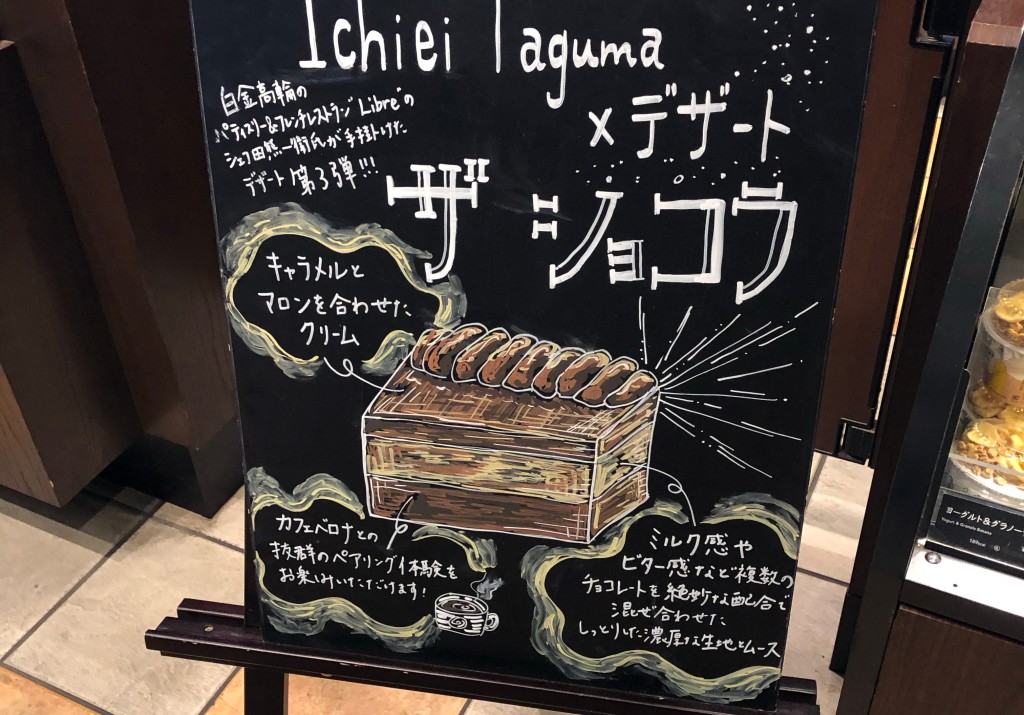 Ichiei Taguma
×デザート
白金高輪の
パティスリー&フレンチレストラン"Libre"の
シェフ田熊一衛氏が手掛けた
デザート 第3弾!!!
ザ ショコラ
キャラメルと
マロンを合わせた
クリーム
カフェベロナとの
抜群のペアリング体験を
お楽しみいただけます!
ミルク感や
ビター感など複数の
チョコレートを絶妙な配合で
混ぜ合わせた
しっとりした濃厚な生地とムース
ヨーグルト&グラノー
Yogurt & Granola Banana